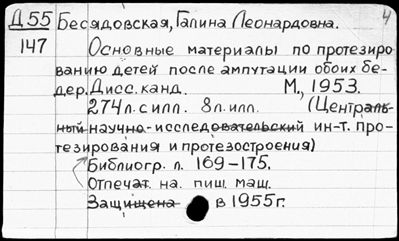 Д 55 Бесядовская, Галина Леонардовна. 4
147
Основные материалы по протезиро
ванию детей после ампутации обоих бе-
дер. Дисс. канд. М., 1953.
274 л. с илл. 8 л. илл. (Централь-
ный научно-исследовательский ин-т. про-
тезирования и протезостроения)
Библиогр. л. 169-175.
Отпечат. на. пиш. маш.
Защищена в 1955г.